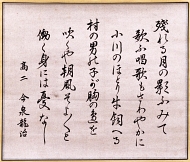 残れる月の影ふみて
歌ふ唱歌もさわやかに
小川のほとり牛飼へる
村の男の子が胸の血を
吹くや朝風そよ〱と
働く身には憂なし
高二 今泉龍治